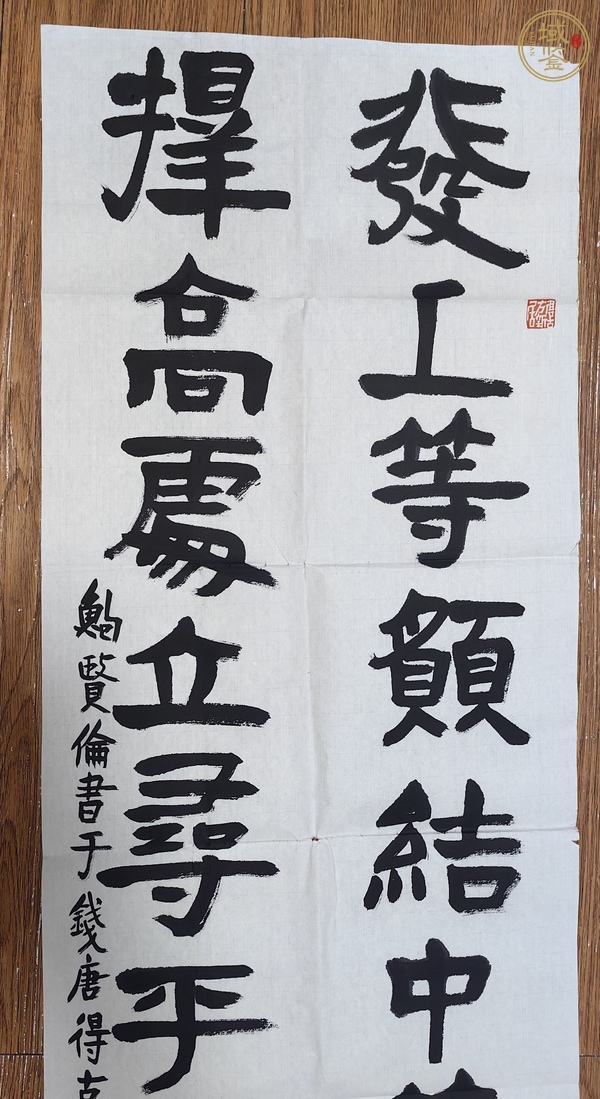 發上等願結中
擇高處立尋平
鮑賢倫書于錢唐得